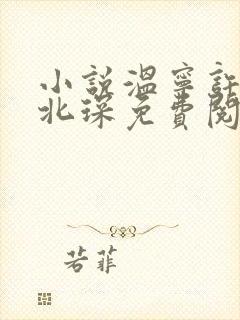 小說溫寧許
北琛免費閱
若菲